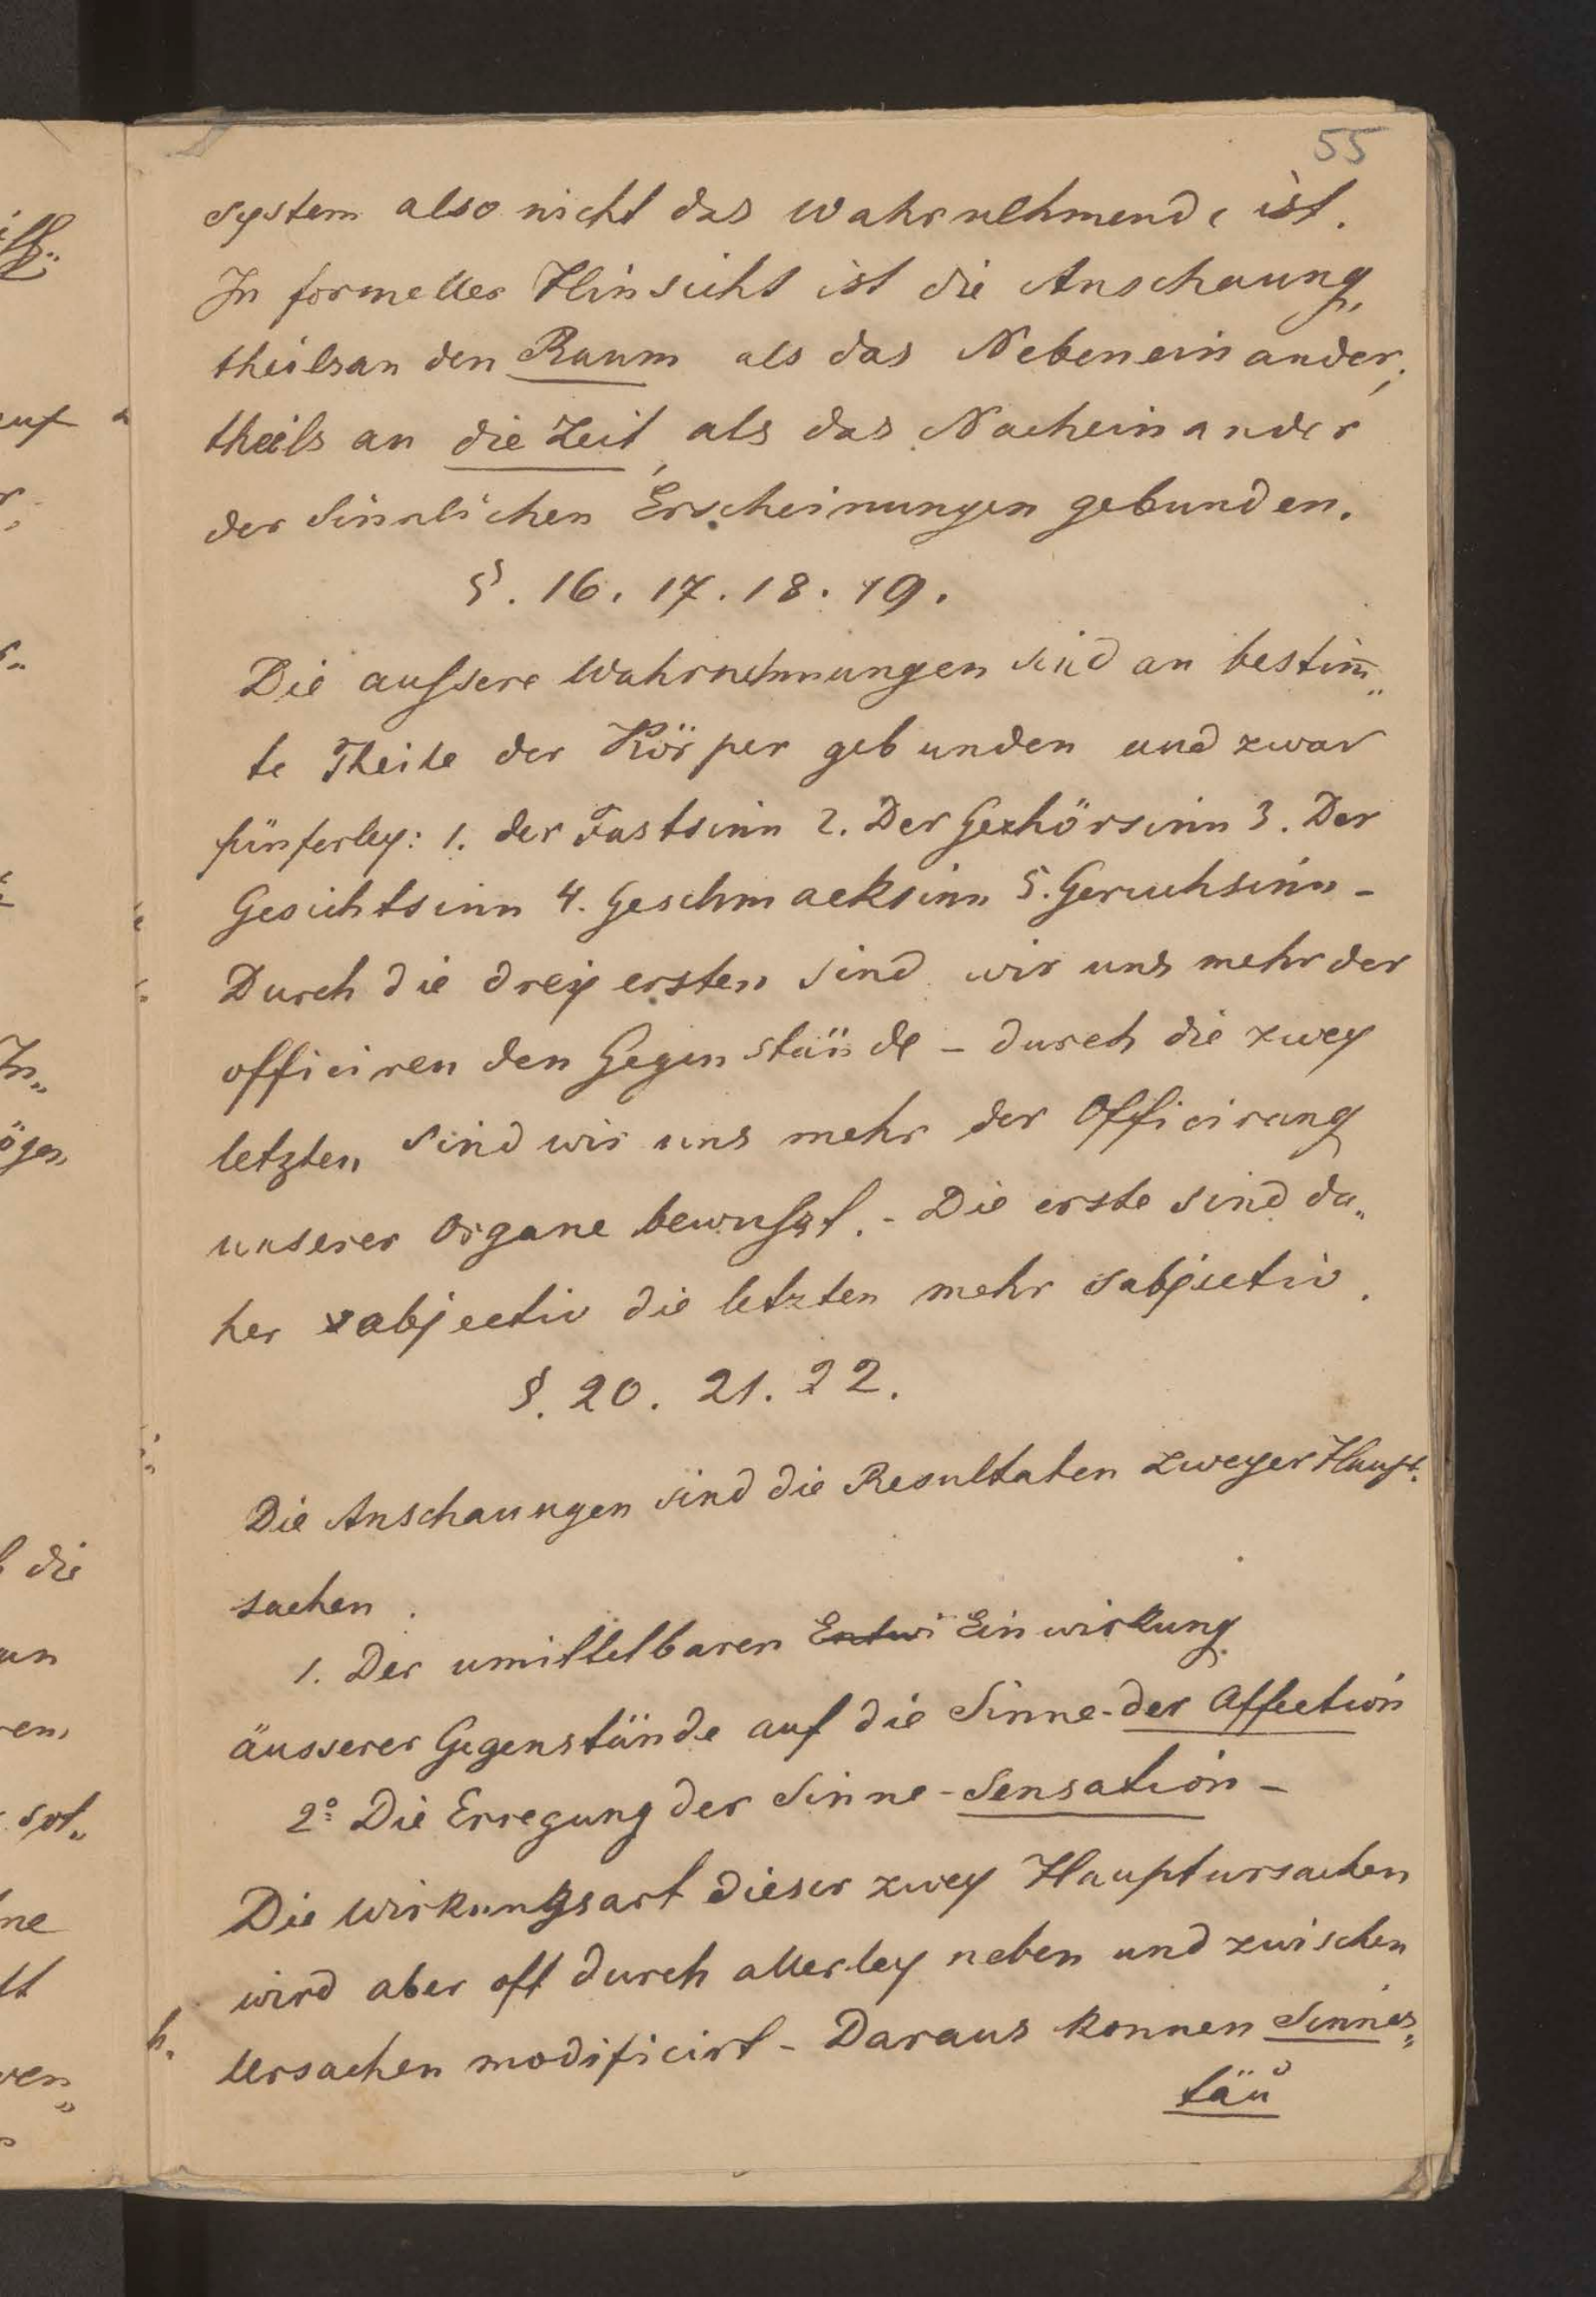 55
system also nicht das wahrnehmende ist.
In formeller Hinsicht ist die Anschaung,
theils an den Raum als das Nebeneinander;
theils an die Zeit, als das Nacheinander
der Sinnlichen Erscheinungen gebunden.
§. 16. 17. 18. 19.
Die aussere Wahrnehmungen sind an bestim̄„
te Theile der Körper gebunden und zwar
fünferley: 1. der Tastsinn 2. Der Gehörsinn 3. Der
Gesichtsinn 4. Geschmacksinn 5. Geruchsinn -
Durch die drey ersten sind wir uns mehr der
officiren den Gegenstände - durch die zwey
letzten sind wir uns mehr der Officirung
unserer Organe bewusst. - Die erste sind da„
her objectiv die letzten mehr subjectiv.
§. 20. 21. 22.
Die Anschauungen sind die Resultaten zweyer Haupt.
sachen.
1. Der umittelbaren Entwi Einwirkung
äusserer Gegenstände auf die Sinne - der Affection
2º Die Erregung der Sinne - Sensation -
Die Wirkungsart dieser zwey Hauptursachen
wird aber oft durch allerley neben und zwischen
Ursachen modificirt - Daraus konnen Sinnes„
täu